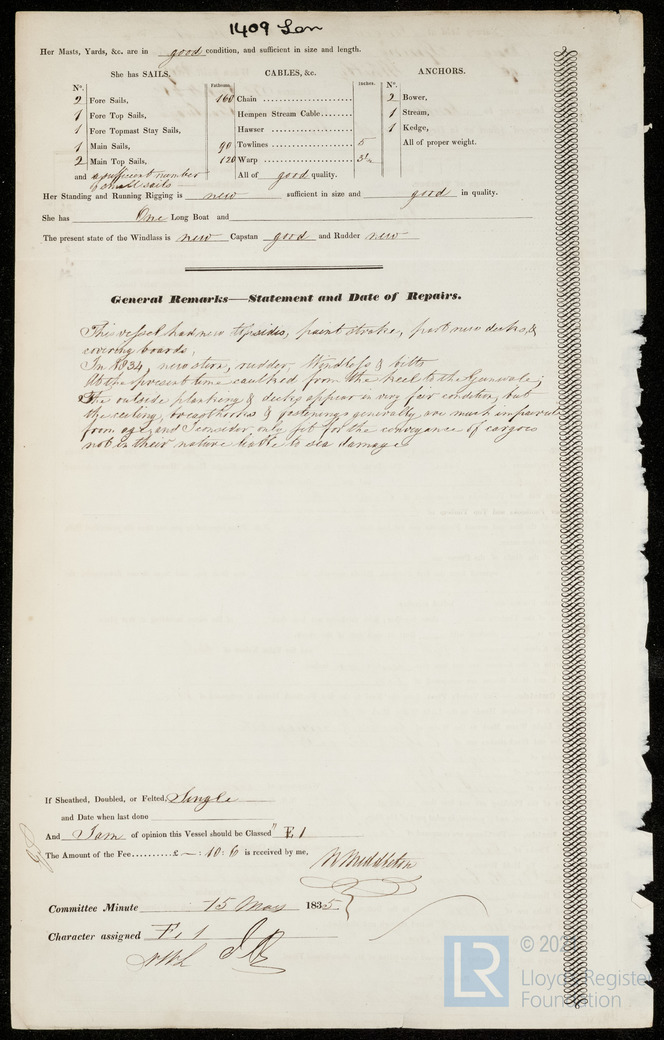 1409 Lon
Her Masts, Yards, &c. are in good condition, and sufficient in size and length.
She has SAILS. CABLES, &c. ANCHORS.
No. Fathoms. Inches. No.
2 Fore Sails, 160 Chain 2 Bower,
1 Fore Top Sails, Hempen Stream Cable 1 Stream,
1 Fore Topmast Stay Sails, Hawser 1 Kedge,
1 Main Sails, 90 Towlines 5 All of proper weight.
2 Main Top Sails, 120 Warp
and a sufficient number All of good quality.
of small sails
Her Standing and Running Rigging is new sufficient in size and good in quality.
She has One Long Boat and
The present state of the Windlass is new Capstan good and Rudder new
General Remarks—Statement and Date of Repairs.
This vessel had new topsides, paint stroke, part new decks, &
covering boards,
In 1834, new stern, rudder, Windlass & bitts
At the present time caulked from the keel to the Gunwale;
The outside planking & decks appear in very fair condition, but
the ceiling, breasthooks & fastenings generally, are much impaired
from age, and I consider, only fit for the conveyance of cargoes
not in their nature liable to sea damage
If Sheathed, Doubled, or Felted, Single
and Date when last done
And I am of opinion this Vessel should be Classed "E 1
The Amount of the Fee..........£ — : 10 : 6 is received by me,
Middleton
Committee Minute 15 May 1835
Character assigned E 1
© 202
LR Lloyd's Register
Foundation